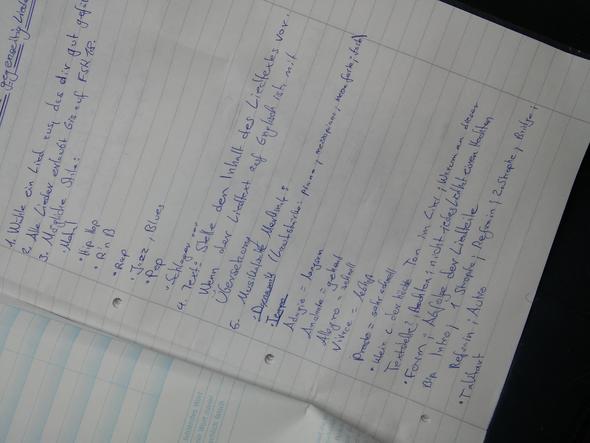 gegenseitig Lieder
1. Wähle ein Lied aus, das dir gut gefällt
2. Alle Lieder erlaubt bis auf FSK 18.
3. Mögliche Stile:
• Metal
• Hip Hop
• R'n B
• Rap
• Jazz, Blues
• Pop
• Schlager ...
4. Text: Stelle den Inhalt des Liedtextes vor.
Wenn der Liedtext auf Englisch ist: mit
Übersetzung
6. Musikalische Merkmale:
• Dynamik (Lautstärke: Piano, mezzopiano, mezzoforte, forte)
• Tempo
Adagio = langsam
Andante = gehend
Allegro = schnell
Vivace = lebhaft
Presto = sehr schnell
• Wann der Ton im Lied, Warum an dieser
Textstelle; nicht jedes Lied hat einen
• Formen; Abfolge der Liedteile
Bsp. Intro, 1 Strophe, Refrain, 2 Strophe, Bridge,
Refrain, Outro
• Taktart